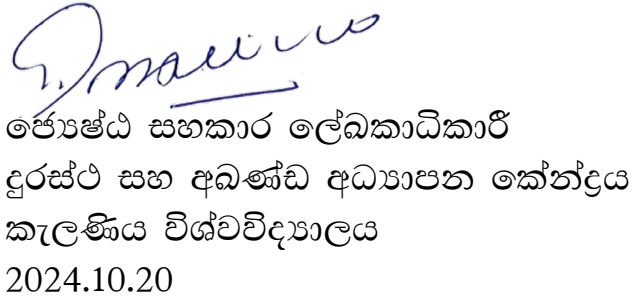 ජ්‍යෙෂ්ඨ සහකාර ලේඛකාධිකාරී
දුරස්ථ සහ අඛණ්ඩ අධ්‍යාපන කේන්ද්‍රය
කැලණිය විශ්වවිද්‍යාලය
2024.10.20